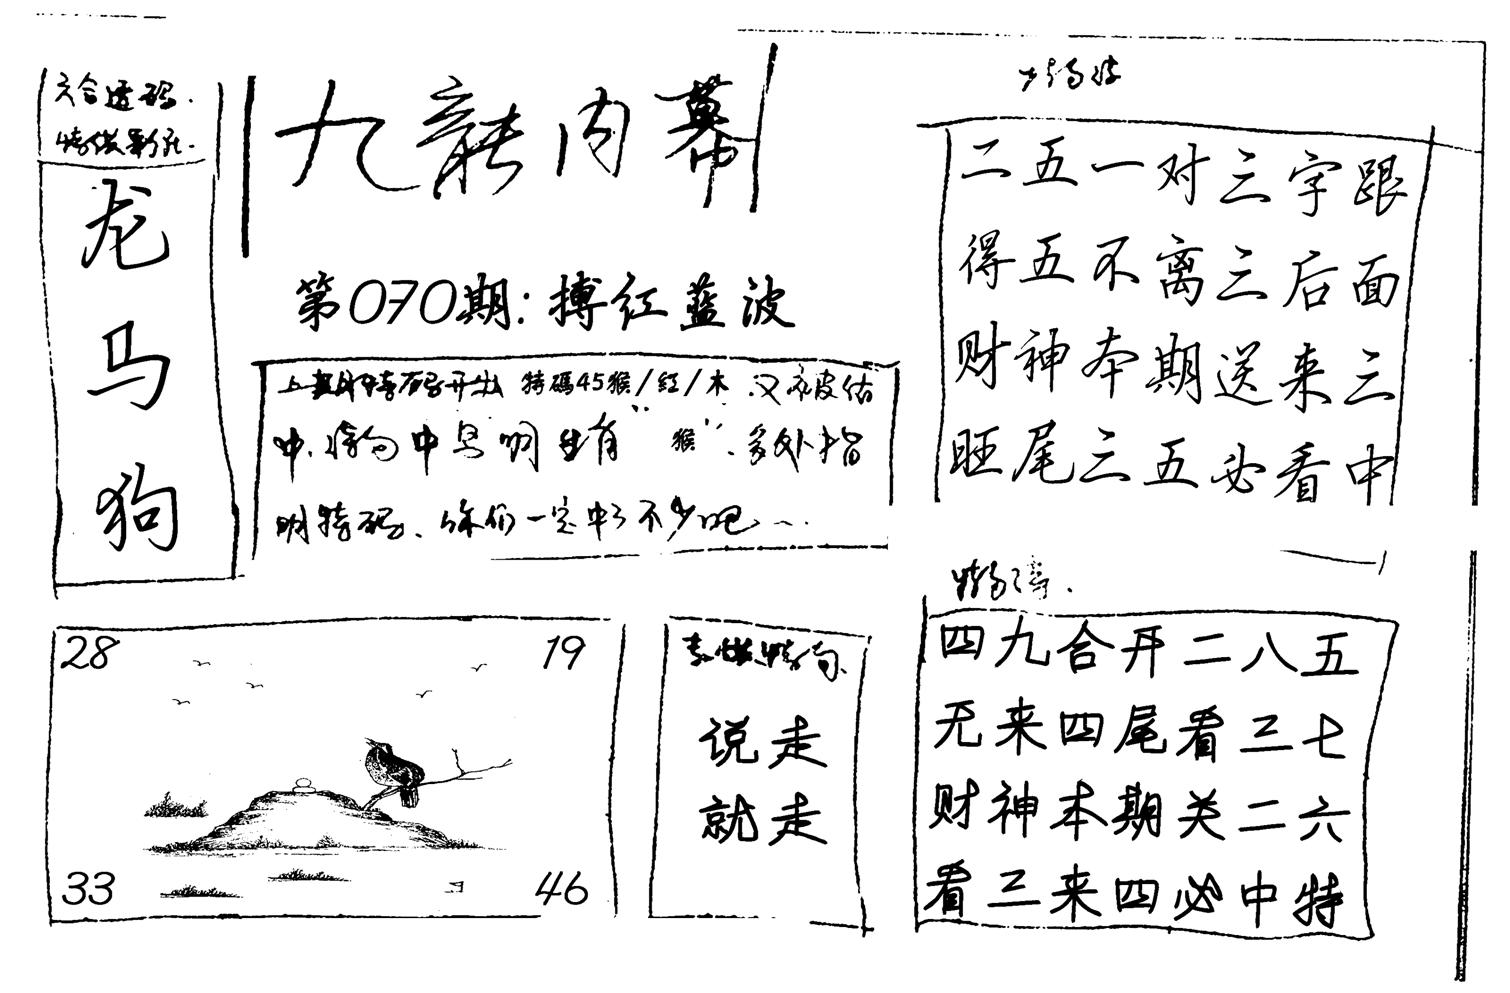 六合透码.
龙
马
狗
九龍内幕
第070期:搏红蓝波
上期特码开出 特碼45猴/红/木.又被估
中.特为中 明 生肖"猴".多处指
明特码、你们一定中了不少吧...
28
19
33
46
说走
就走
二五一对三字跟
得五不离三后面
财神本期送来三
旺尾三五必看中
四九合开二八五
无来四尾看三七
财神本期关二六
看三来四必中特